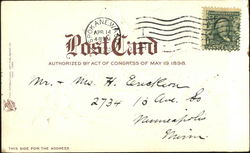 SPOKANE, WASH.
APR 14
Post Card
AUTHORIZED BY ACT OF CONGRESS OF MAY 19, 1898.
Mr. & Mrs. H. Erickson
2734 13 Ave. So
Minneapolis
Minn
THIS SIDE FOR THE ADDRESS